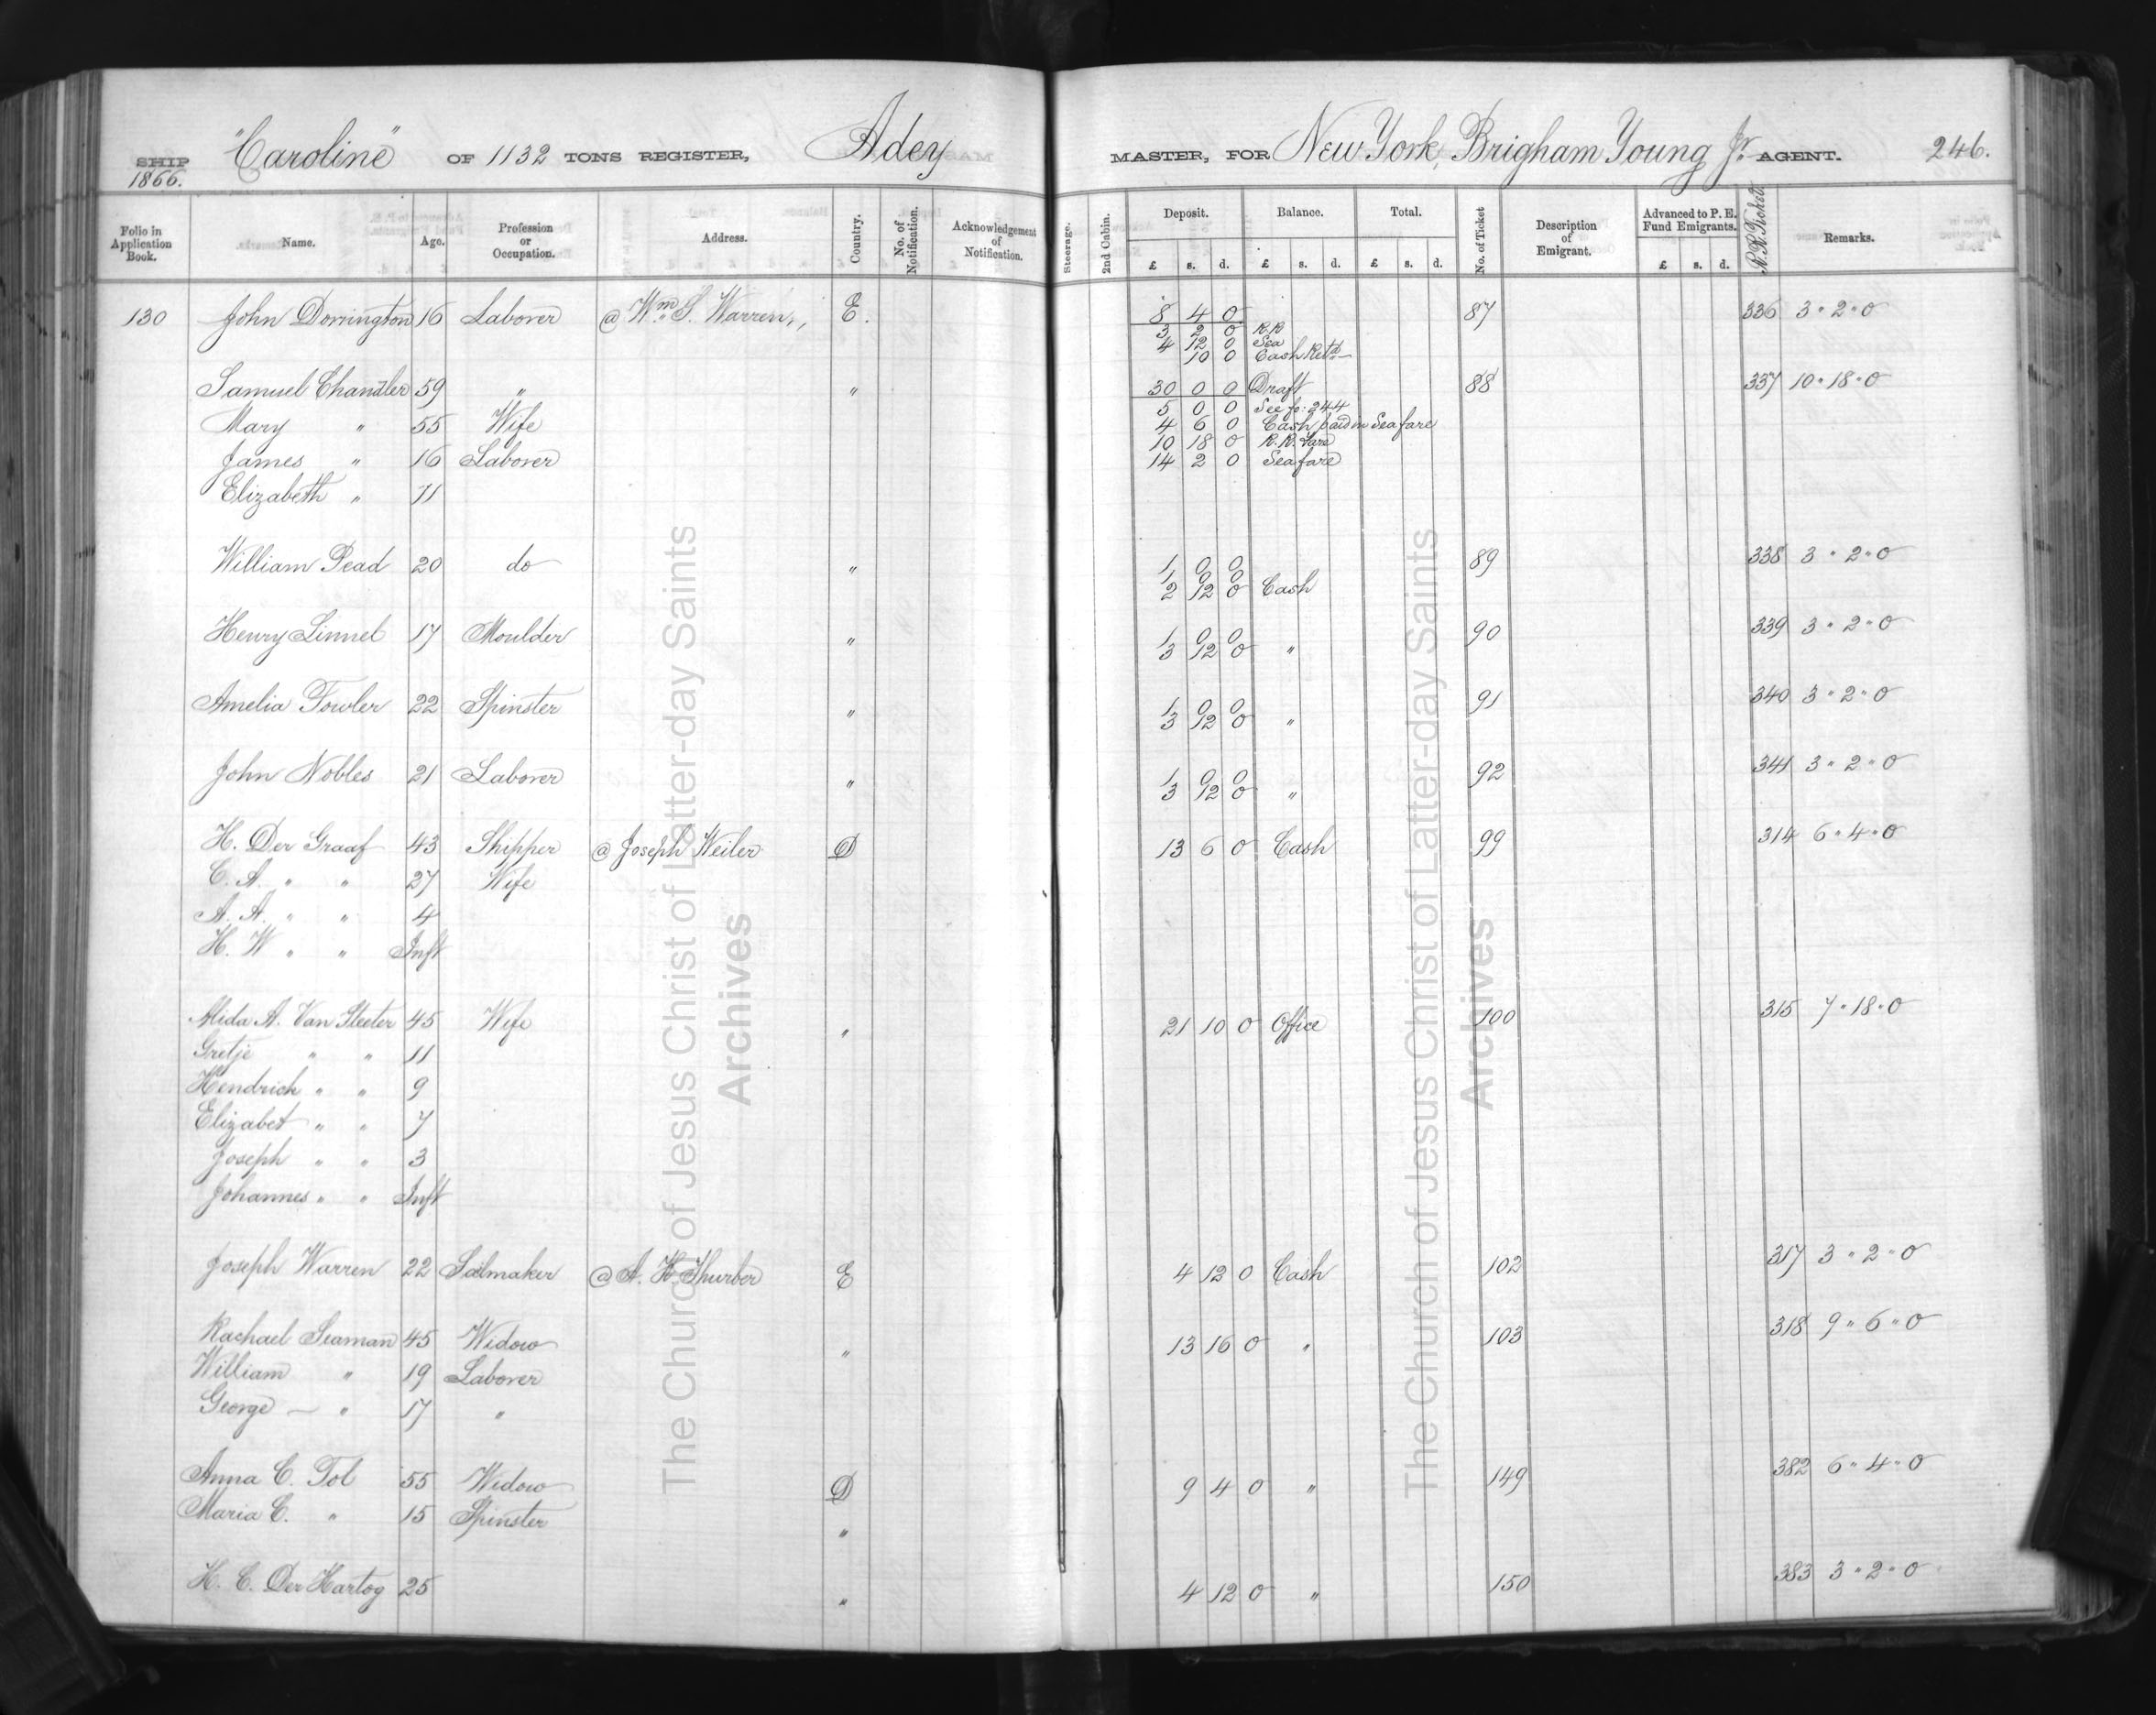 SHIP "Caroline" OF 1132 TONS REGISTER, Adey MASTER, FOR New York, Brigham Young Jr. AGENT. 246.
1866.
Folio in Application Book. Name. Age. Profession or Occupation. Address. Country. No. of Notification. Acknowledgement of Notification. Steerage. 2nd Cabin. Deposit. £ s. d. Balance. £ s. d. Total. £ s. d. No. of Ticket Description of Emigrant. Advanced to P. E. Fund Emigrants. £ s. d. R.R. Tickets Remarks.
130 John Dorrington 16 Laborer @ Wm. S. Warren,, E. 8 4 0 87 336 3 " 2 " 0
3 2 0 R.R
4 12 0 Sea
10 0 Cash Retd
Samuel Chandler 59 " " 30 0 0 Draft 88 337 10 " 18 " 0
5 0 0 See fo: 244
Mary " 55 Wife 4 6 0 Cash paid in Sea fare
10 18 0 R.R. Fare
James " 16 Laborer 14 2 0 Sea fare
Elizabeth " 71
William Pead 20 do " 1 0 0 89 338 3 " 2 " 0
1 0 0
2 12 0 Cash
Henry Linnel 17 Moulder " 1 0 0 90 339 3 " 2 " 0
3 12 0 "
Amelia Fowler 22 Spinster " 1 0 0 91 340 3 " 2 " 0
3 12 0 "
John Nobles 21 Laborer " 1 0 0 92 341 3 " 2 " 0
3 12 0 "
H. Der Graaf 43 Shipper @ Joseph Weiler D 13 6 0 Cash 99 314 6 " 4 " 0
C. A. " " 27 Wife
A. A. " " 4
H. W " " Inft
Alida A. Van Sleeter 45 Wife " 21 10 0 Office 100 315 7 " 18 " 0
Gretje " " 11
Hendrich " " 9
Elizabet " " 7
Joseph " " 3
Johannes " " Inft
Joseph Warren 22 Sailmaker @ A. H. Thurber E 4 12 0 Cash 102 317 3 " 2 " 0
Rachael Seaman 45 Widow " 13 16 0 " 103 318 9 " 6 " 0
William " 19 Laborer
George — " 17 "
Anna C. Tol 55 Widow D 9 4 0 " 149 382 6 " 4 " 0
Maria C. " 15 Spinster "
H. C. Der Hartog 25 " 4 12 0 " 150 383 3 " 2 " 0
The Church of Jesus Christ of Latter-day Saints
Archives
The Church of Jesus Christ of Latter-day Saints
Archives